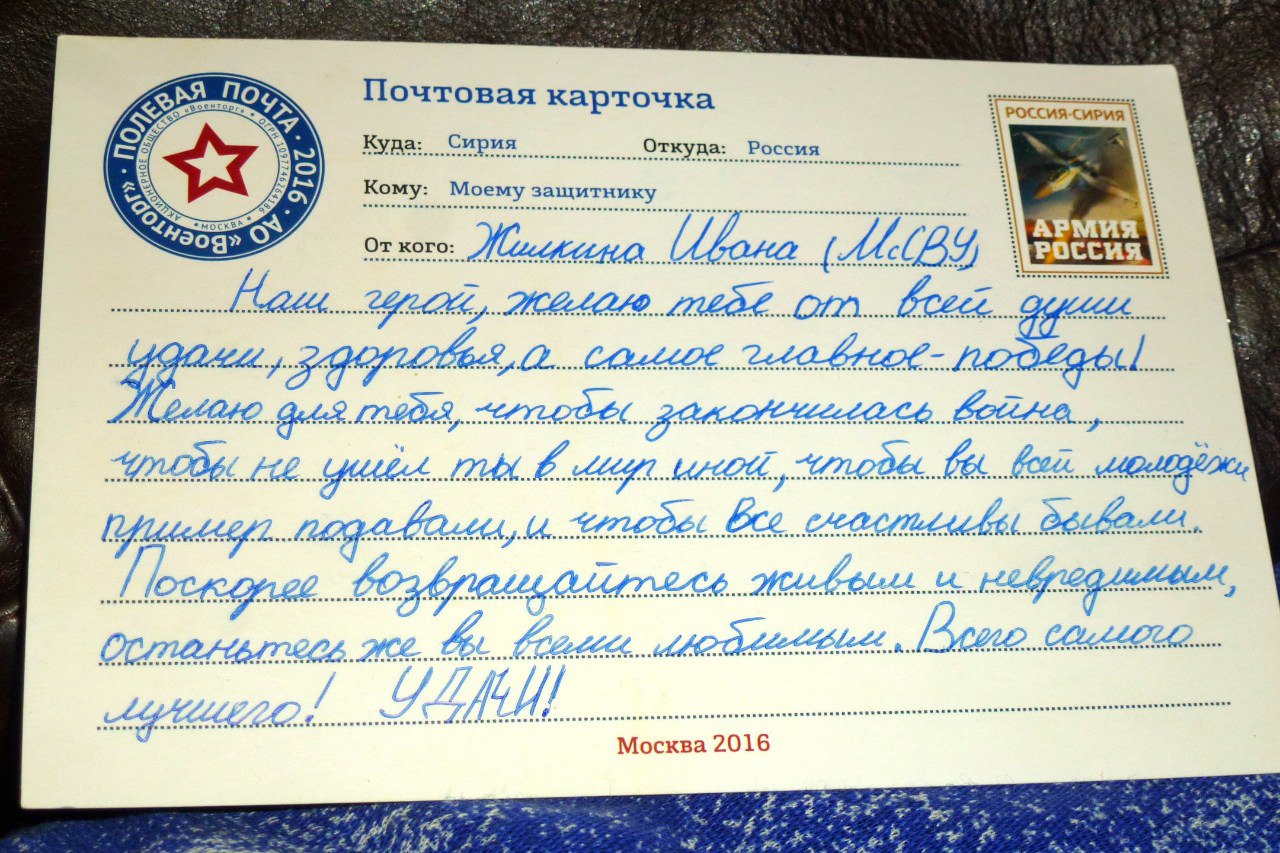 ПОЛЕВАЯ ПОЧТА · 2016 · АО «ВОЕНТОРГ» ·
АКЦИОНЕРНОЕ ОБЩЕСТВО «Военторг» * ОГРН 1097746264186 * МОСКВА *
Почтовая карточка
Куда: Сирия Откуда: Россия
Кому: Моему защитнику
От кого: Жилкина Ивана (МсСВУ)
РОССИЯ-СИРИЯ
АРМИЯ
РОССИЯ
Наш герой, желаю тебе от всей души
удачи, здоровья, а самое главное - победы!
Желаю для тебя, чтобы закончилась война,
чтобы не ушёл ты в мир иной, чтобы вы всей молодёжи
пример подавали, и чтобы все счастливы бывали.
Поскорее возвращайтесь живым и невредимым,
останьтесь же вы всеми любимым. Всего самого
лучшего! УДАЧИ!
Москва 2016